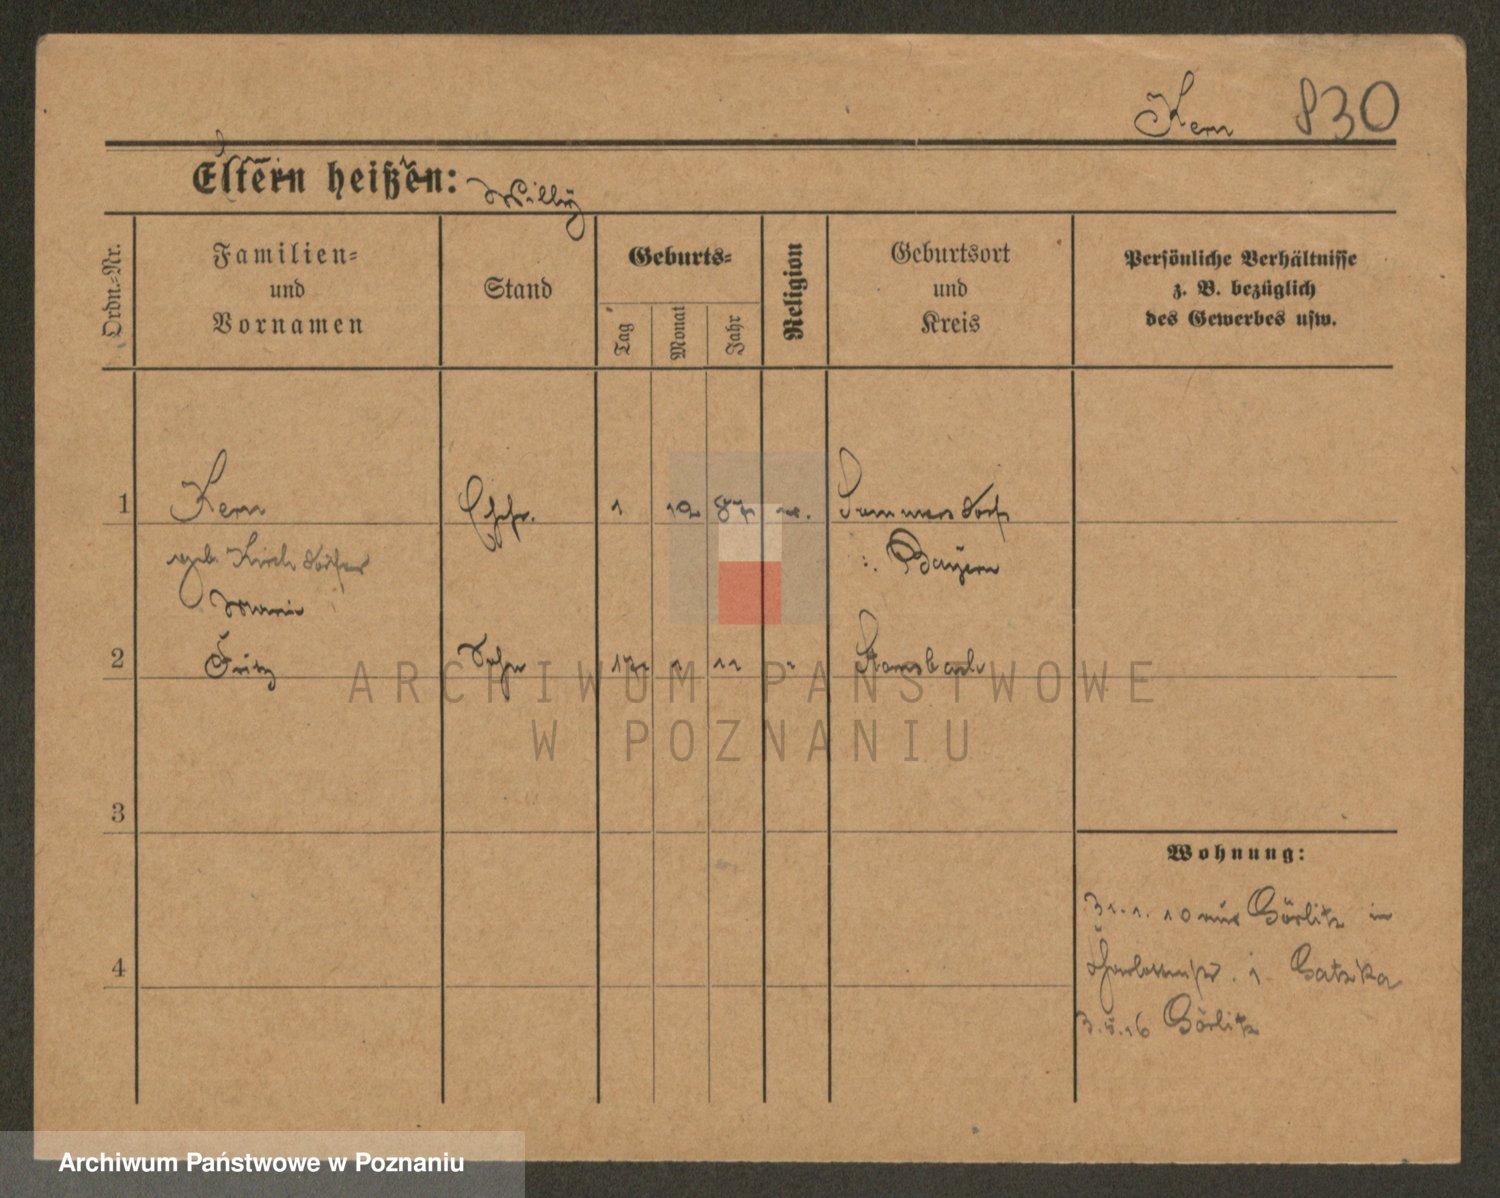 Kern 830
Eltern heißen: Willy
Ordn.-Nr.
Familien-
und
Vornamen
Stand
Geburts-
Tag
Monat
Jahr
Religion
Geburtsort
und
Kreis
Persönliche Verhältnisse
z. B. bezüglich
des Gewerbes usw.
1 Kern Ehefr. 1 12 87
geb. Kirchdörfer
: Bayern
Marie
2 Fritz Sohn 17 1 11 "
3
4
Wohnung:
31.1.10 aus Görlitz in
3.5.16 Görlitz
ARCHIWUM PAŃSTWOWE
W POZNANIU
Archiwum Państwowe w Poznaniu